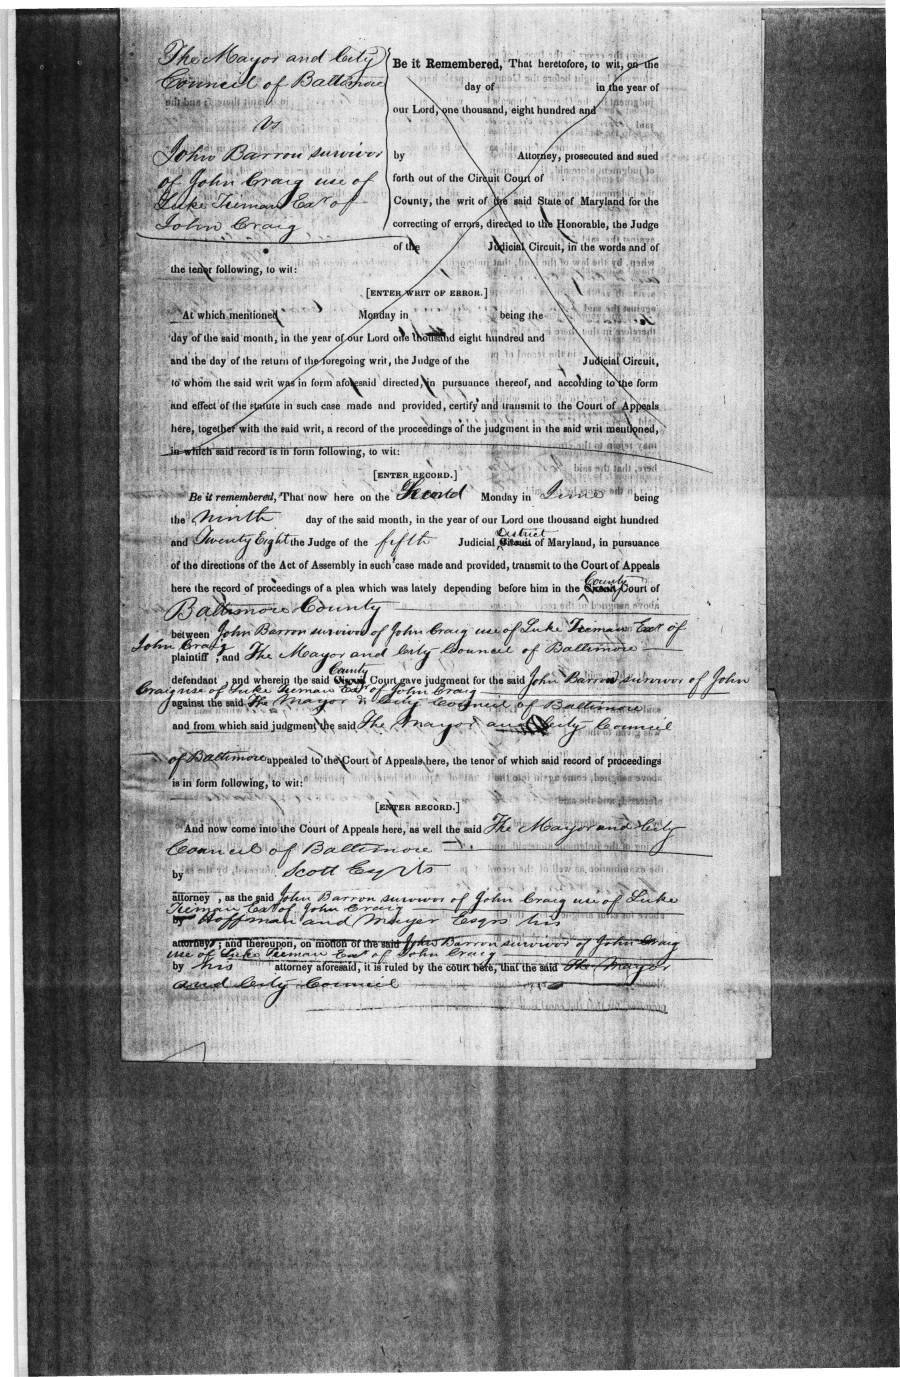 The Mayor and City
Council of Baltimore
vs
John Barron survivor
of John Craig use of
Luke Tieman Exr of
John Craig
Be it Remembered, That heretofore, to wit, on the
day of in the year of
our Lord, one thousand, eight hundred and
by Attorney, prosecuted and sued
forth out of the Circuit Court of
County, the writ of the said State of Maryland for the
correcting of errors, directed to the Honorable, the Judge
of the Judicial Circuit, in the words and of
the tenor following, to wit:
[ENTER WRIT OF ERROR.]
At which mentioned Monday in being the
day of the said month, in the year of our Lord one thousand eight hundred and
and the day of the return of the foregoing writ, the Judge of the Judicial Circuit,
to whom the said writ was in form aforesaid directed, in pursuance thereof, and according to the form
and effect of the statute in such case made and provided, certify and transmit to the Court of Appeals
here, together with the said writ, a record of the proceedings of the judgment in the said writ mentioned,
in which said record is in form following, to wit:
[ENTER RECORD.]
Be it remembered, That now here on the Second Monday in June being
the Ninth day of the said month, in the year of our Lord one thousand eight hundred
and Twenty Eight the Judge of the fifth Judicial District Circuit of Maryland, in pursuance
of the directions of the Act of Assembly in such case made and provided, transmit to the Court of Appeals
here the record of proceedings of a plea which was lately depending before him in the County Circuit Court of
Baltimore County
between John Barron survivor of John Craig use of Luke Tieman Exr of
John Craig
plaintiff, and The Mayor and City Council of Baltimore
defendant, and wherein the said County Circuit Court gave judgment for the said John Barron survivor of John
Craig use of Luke Tieman Exr of John Craig
against the said The Mayor & City Council of Baltimore
and from which said judgment the said The Mayor and City Council
of Baltimore appealed to the Court of Appeals here, the tenor of which said record of proceedings
is in form following, to wit:
[ENTER RECORD.]
And now come into the Court of Appeals here, as well the said The Mayor and City
Council of Baltimore
by Scott Esq its
attorney, as the said John Barron survivor of John Craig use of Luke
Tieman Exr of John Craig
by Hoffman and Mayer Esqrs his
attorneys; and thereupon, on motion of the said John Barron survivor of John Craig
use of Luke Tieman Exr of John Craig
by his attorney aforesaid, it is ruled by the court here, that the said The Mayor
and City Council